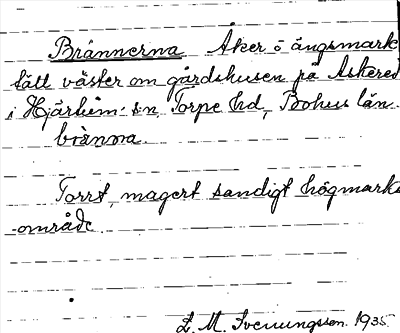 Brännerna Åker o ängsmark
tätt väster om gårdshusen på Askered
i Hjärtum sn, Torpe hd, Bohus län.
bränna.
Torrt, magert sandigt högmarks
-område.
L. M. Svenungsson 1935.